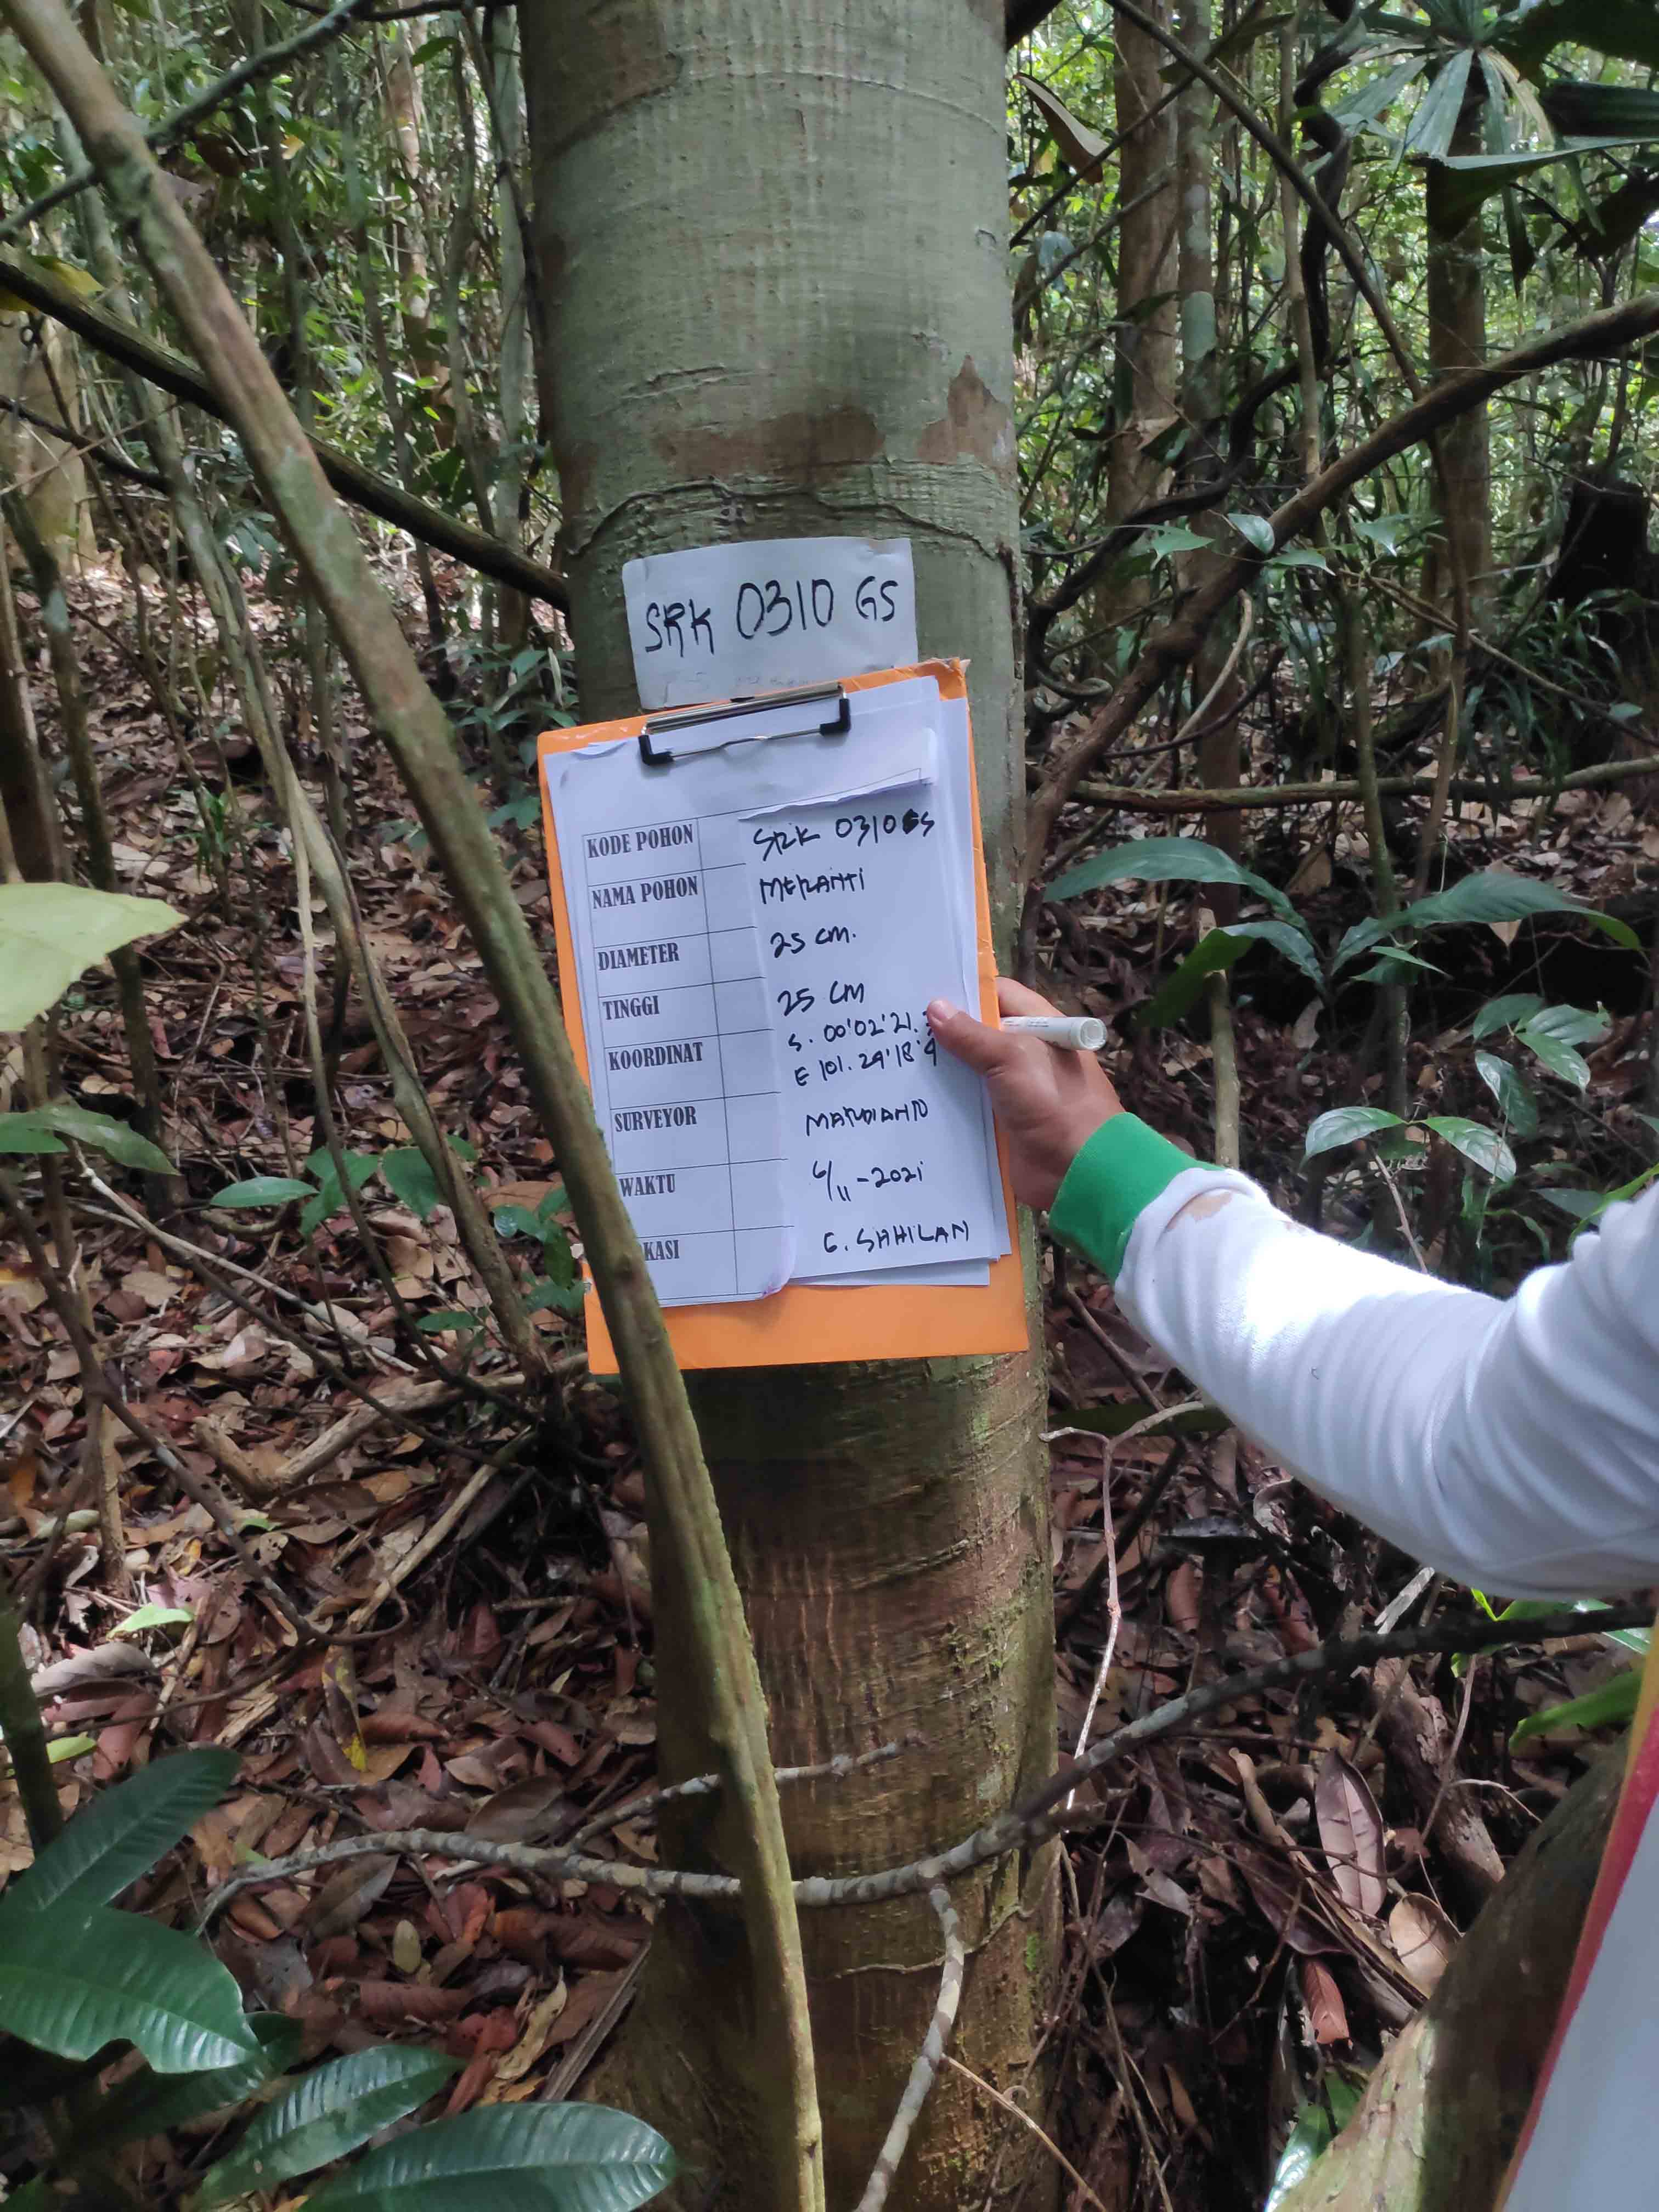 SRK 0310 GS
KODE POHON SRK 0310 GS
NAMA POHON MERANTI
DIAMETER 25 CM.
TINGGI 25 CM
KOORDINAT S. 00'02'21.
E 101. 29'18'9
SURVEYOR MARDIANTO
WAKTU 6/11-2021
KASI G. SAHILAN